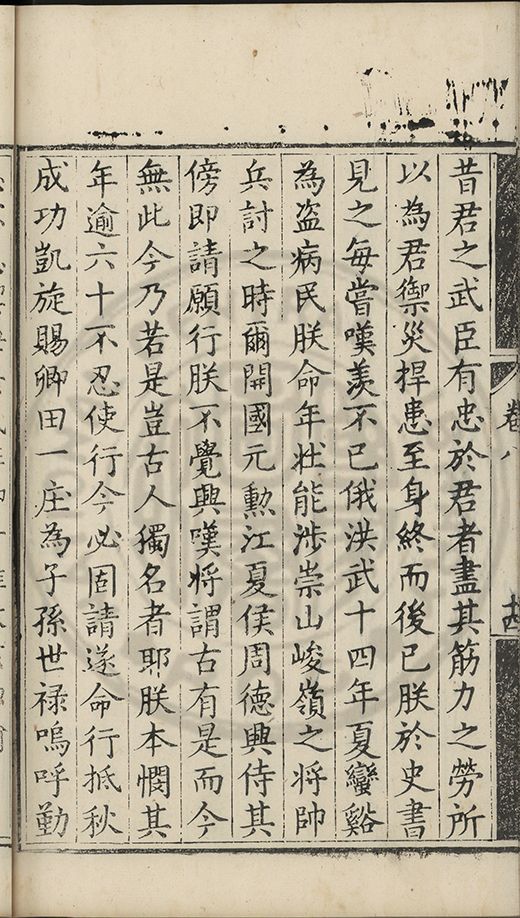 卷八
十四
昔君之武臣有忠於君者盡其筋力之勞所
以為君禦災捍患至身終而後已朕於史書
見之每嘗嘆羨不已俄洪武十四年夏蠻谿
為盜病民朕命年壯能涉崇山峻嶺之將帥
兵討之時爾開國元勳江夏侯周德興侍其
傍即請願行朕不覺興嘆將謂古有是而今
無此今乃若是豈古人獨名者耶朕本憫其
年逾六十不忍使行今必固請遂命行抵秋
成功凱旋賜卿田一庄為子孫世祿嗚呼勤